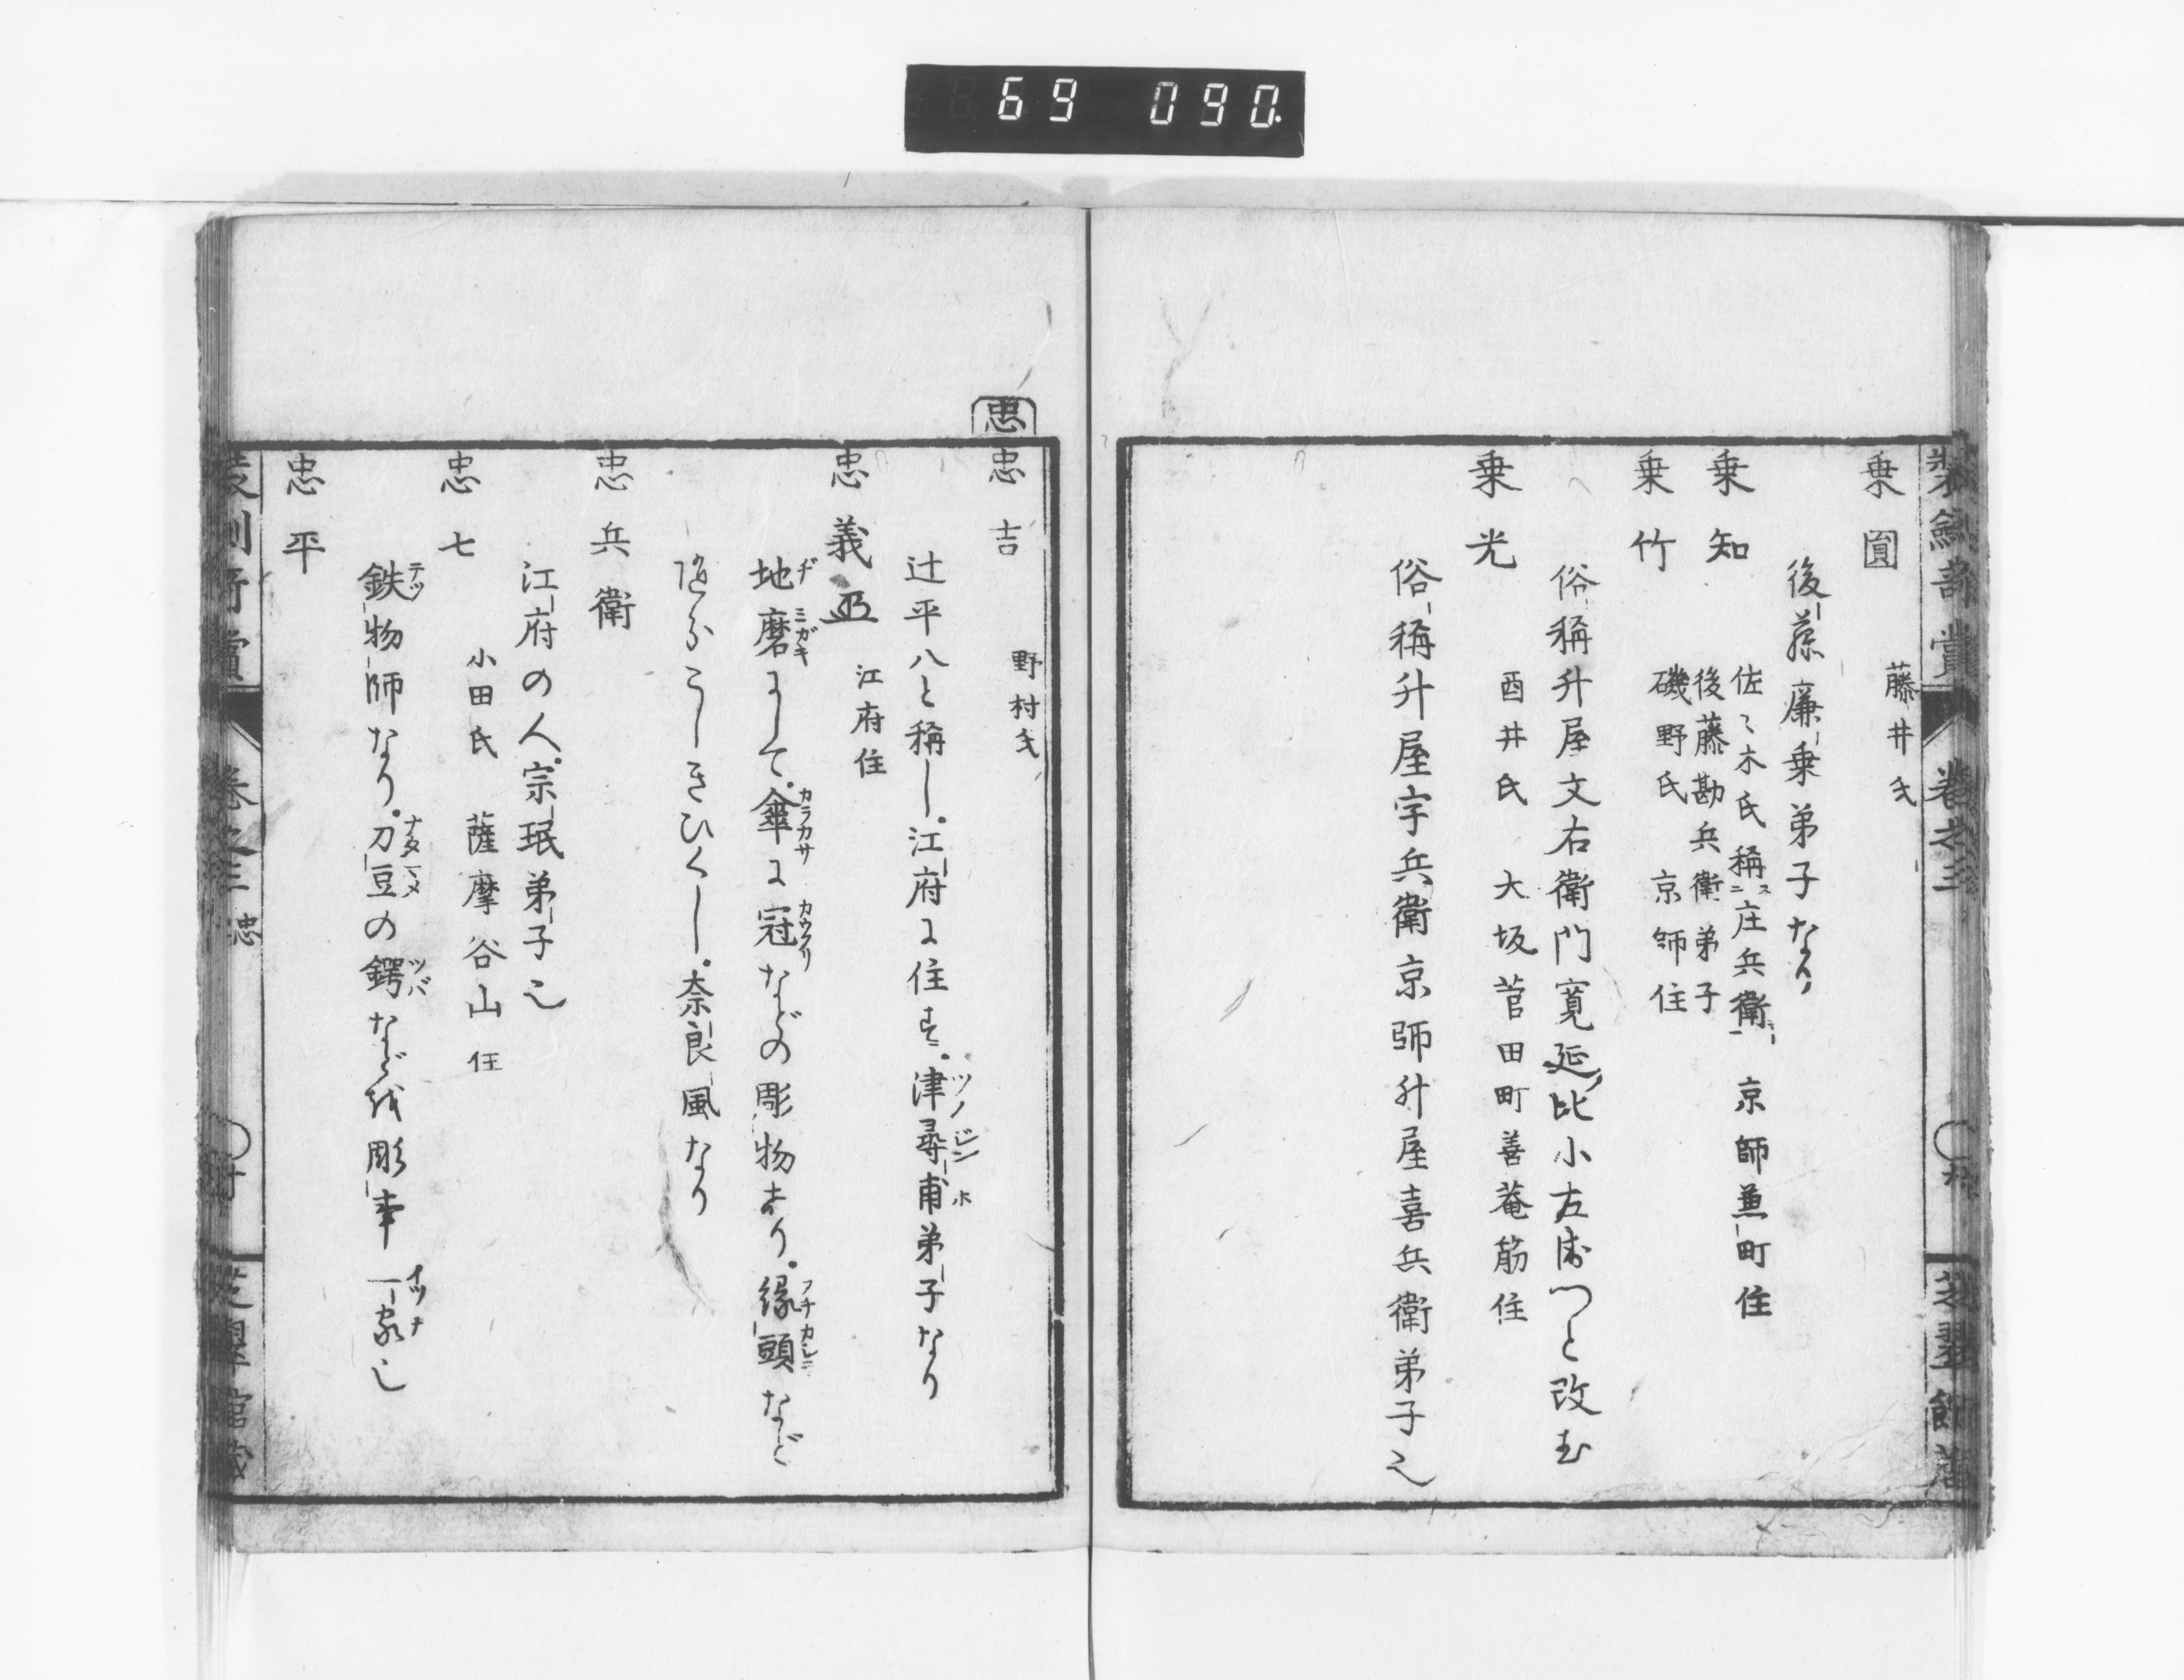 69 090.
装劔奇賞 巻之三
乗圓 藤井氏
後藤廉乗弟子なり
乗知 佐々木氏称ス庄兵衛ニ 京師魚町住
後藤勘兵衛弟子
乗竹 磯野氏 京師住
俗稱升屋文右衛門寛延比小左衛門と改む
乗光 酉井氏 大坂菅田町善菴筋住
俗稱升屋宇兵衛京師升屋喜兵衛弟子也
忠
忠吉 野村氏
辻平八と稱し。江府に住す。津尋甫弟子なり
ツ ジン ホ
忠義 江府住
地磨にして。傘に冠などの彫物あり。縁頭など
ヂ ミガキ カラカサ カウフリ フチカシラ
こしきひくし。奈良風なり
忠兵衛
江府の人。宗珉弟子也
忠七 小田氏 薩摩谷山住
鉄物師なり。刀豆の鍔など
テツ ナタマメ ツバ
彫事一家也
忠平
巻之三 忠